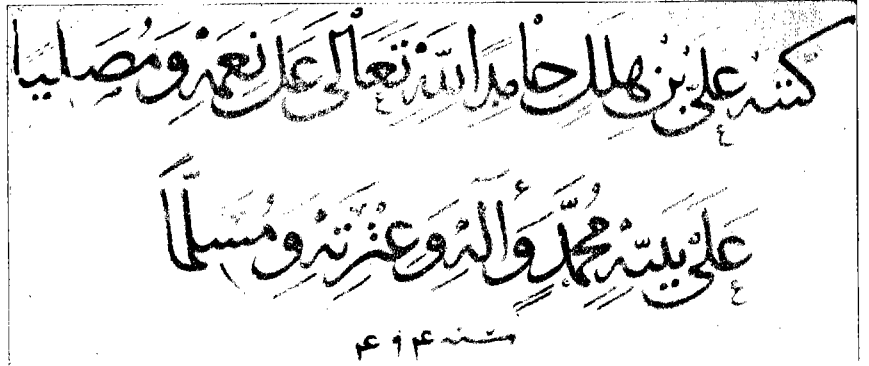 كَتَبَهُ عَلِيُّ بْنُ هِلَالٍ حَامِدًا لِلَّهِ تَعَالَى عَلَى نِعَمِهِ وَمُصَلِّيًا
عَلَى نَبِيِّهِ مُحَمَّدٍ وَآلِهِ وَعِتْرَتِهِ وَمُسَلِّمًا
سنة